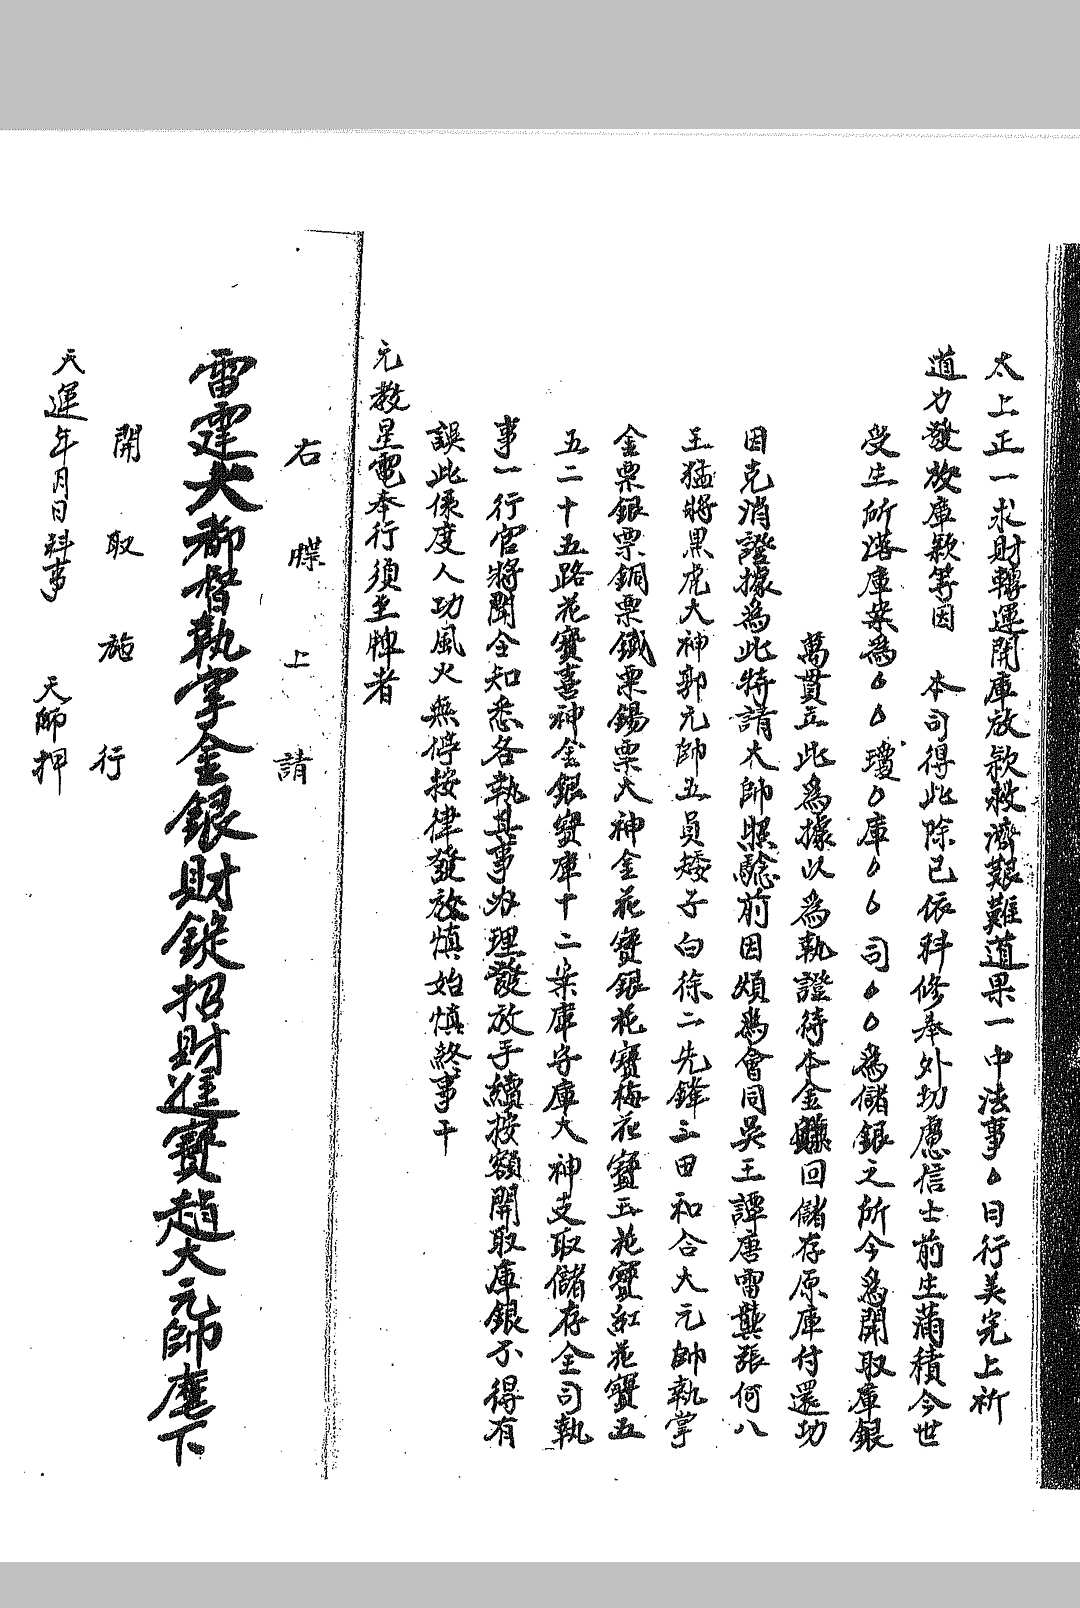 太上正一求財轉運開庫放款救濟艱難道果一中法事〇日行美完上祈
道力發放庫款等因　本司得此除已依科修奉外切慮信士前生蒲積今世
受生所落庫案為〇〇瓊〇庫〇〇司〇〇為儲銀之所今為開取庫銀
萬貫立此為據以為執證待本金賺回儲存原庫付還功
因克消證據為此特請大帥照驗前因煩為會同吳王譚唐雷龔張何八
王猛將黑虎大神郭元帥五員矮子白徐二先鋒三田和合大元帥執掌
金票銀票銅票鐵票錫票大神金花寶銀花寶梅花寶玉花寶紅花寶五
五二十五路花寶喜神金銀寶庫十二案庫字庫大神支取儲存全司執
事一行官將開全知悉各執其事办理發放手續按額開取庫銀不得有
誤此係度人功風火無停按律發放慎始慎終事干
元教星電奉行須至牌者
右牒上請
雷霆大都督執掌金銀財錠招財進寶趙大元帥麾下
開取施行
天運年月日科事　天師押